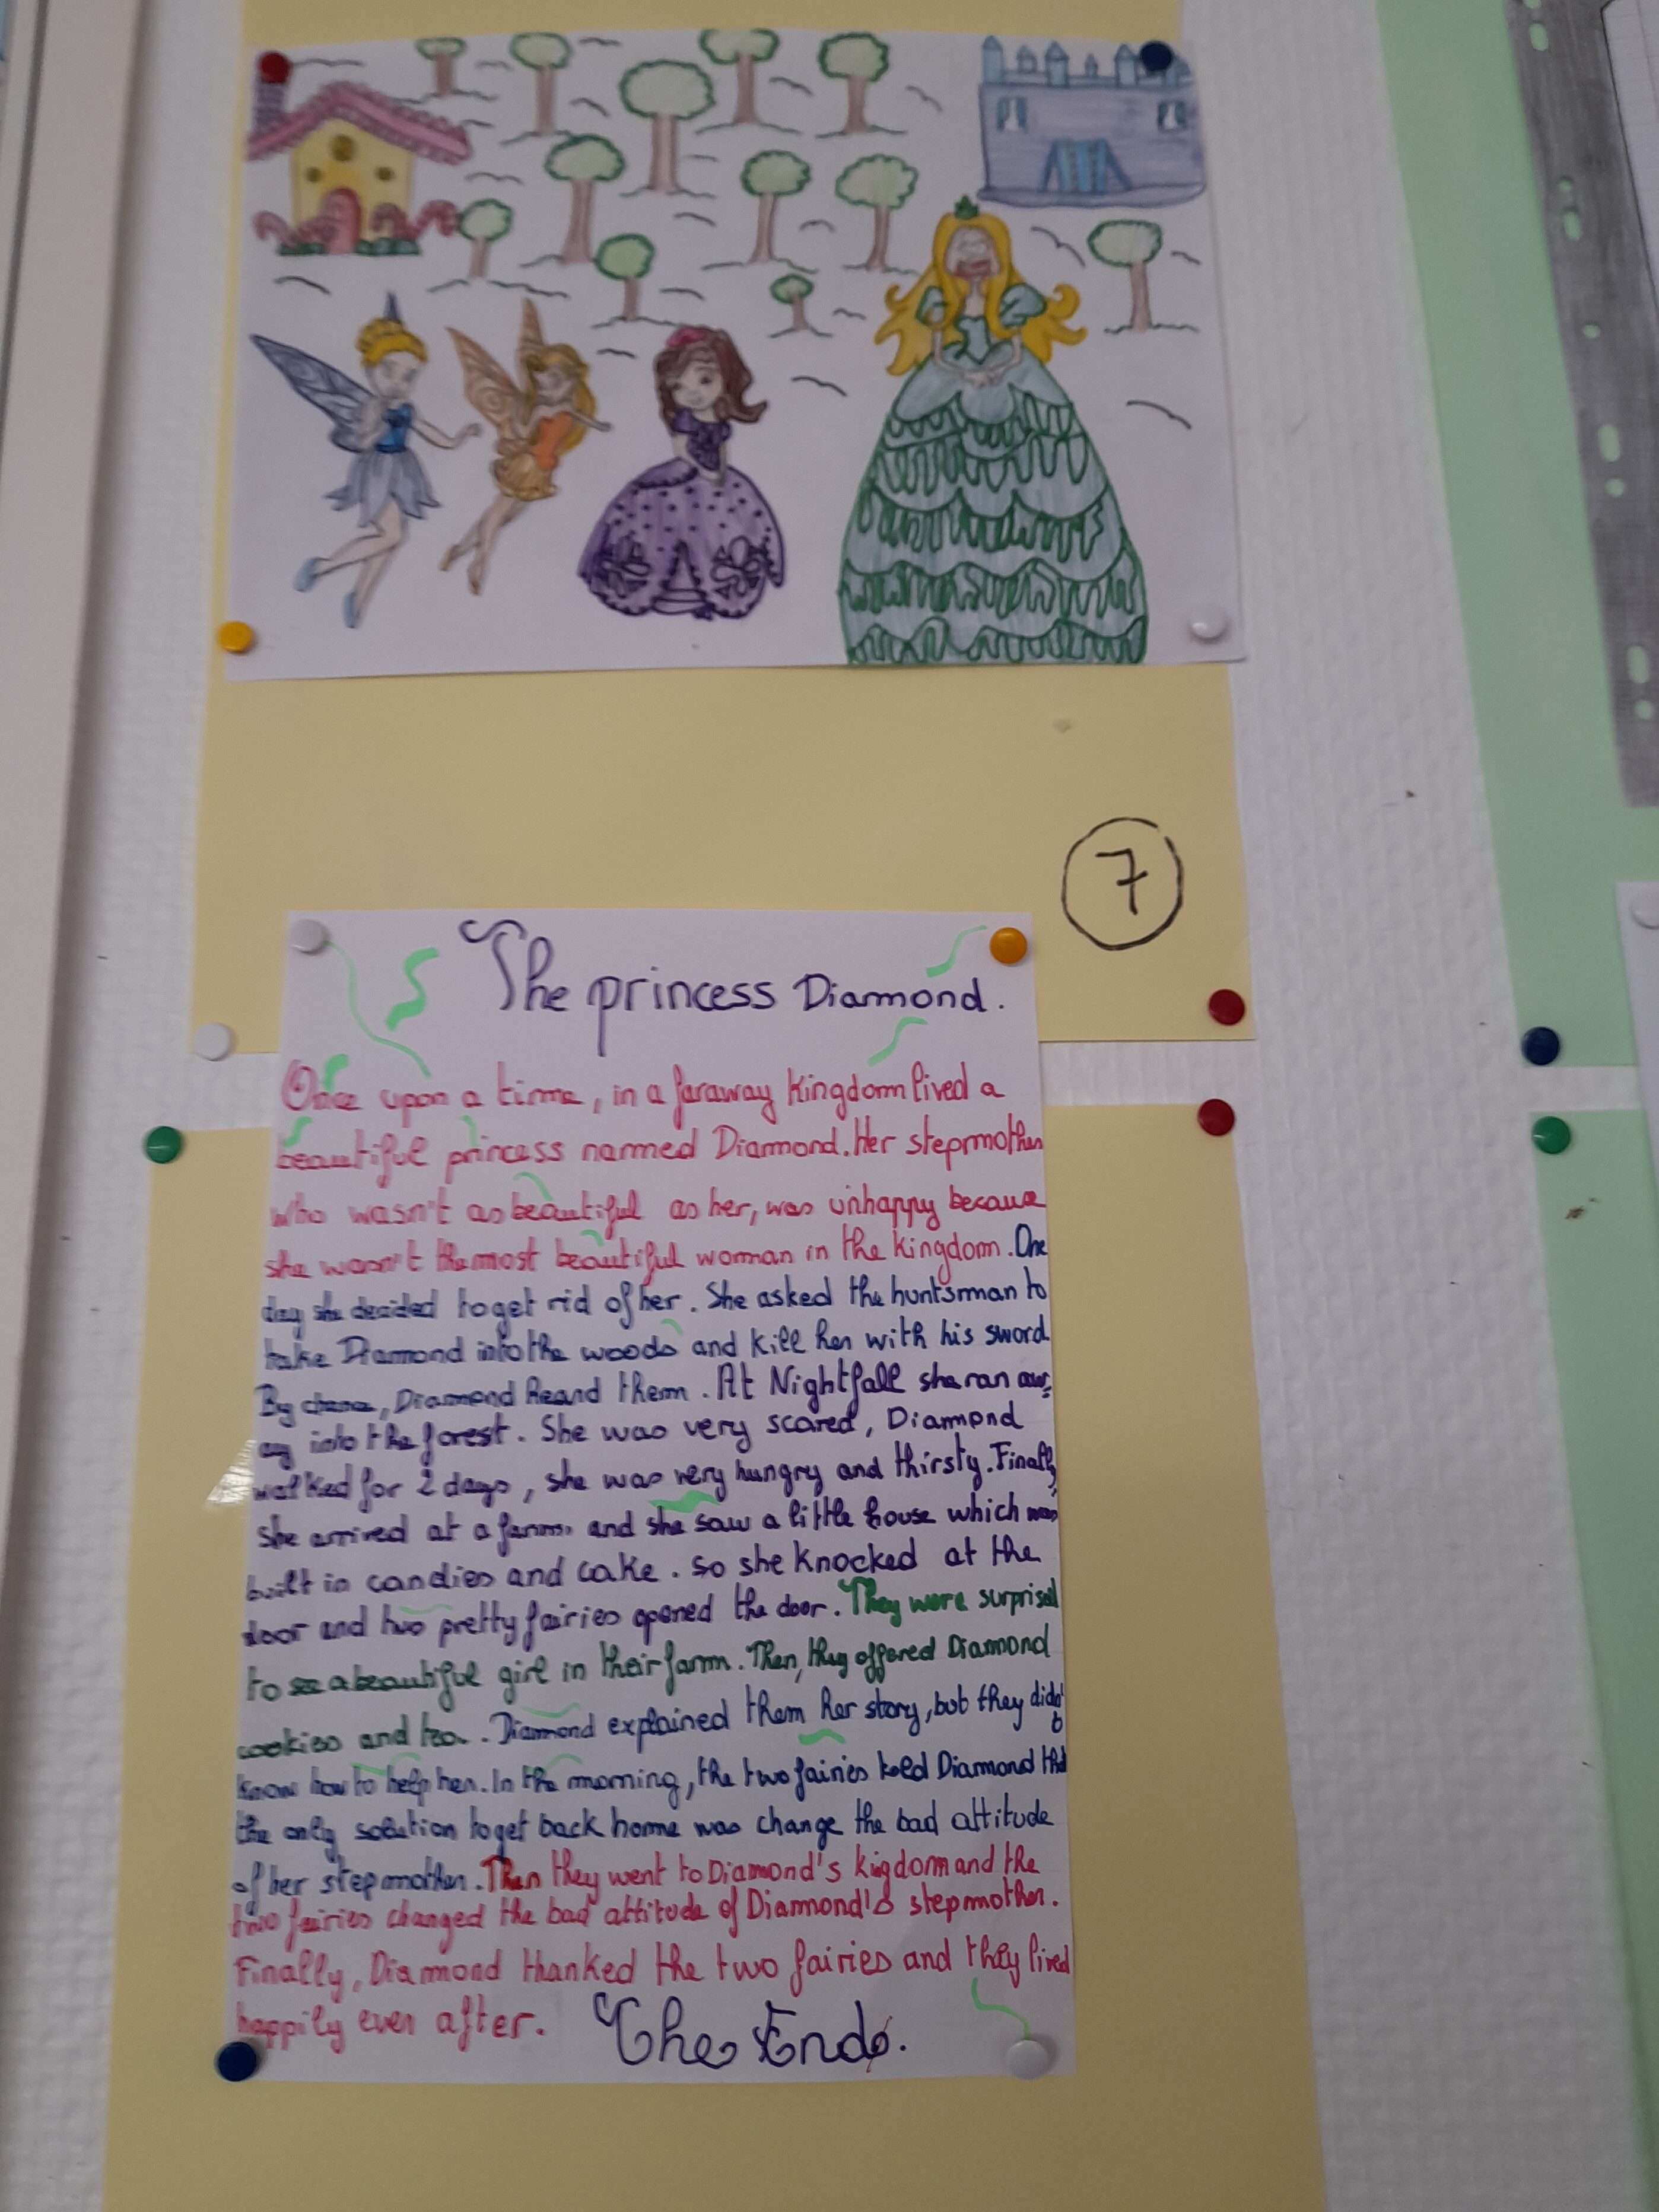 7
The princess Diamond.
Once upon a time, in a faraway Kingdom lived a
beautiful princess named Diamond. Her stepmother
who wasn't as beautiful as her, was unhappy because
she wasn't the most beautiful woman in the kingdom. One
day she decided to get rid of her. She asked the huntsman to
take Diamond into the woods and kill her with his sword.
By chance, Diamond heard them. At Nightfall she ran aw-
ay into the forest. She was very scared, Diamond
walked for 2 days, she was very hungry and thirsty. Finally,
she arrived at a farm, and she saw a little house which was
built in candies and cake. So she knocked at the
door and two pretty fairies opened the door. They were surprised
to see a beautiful girl in their farm. Then, they offered Diamond
cookies and tea. Diamond explained them her story, but they didn't
know how to help her. In the morning, the two fairies told Diamond that
the only solution to get back home was change the bad attitude
of her stepmother. Then they went to Diamond's kigdom and the
two fairies changed the bad attitude of Diamond's stepmother.
Finally, Diamond thanked the two fairies and they lived
happily ever after. The End.